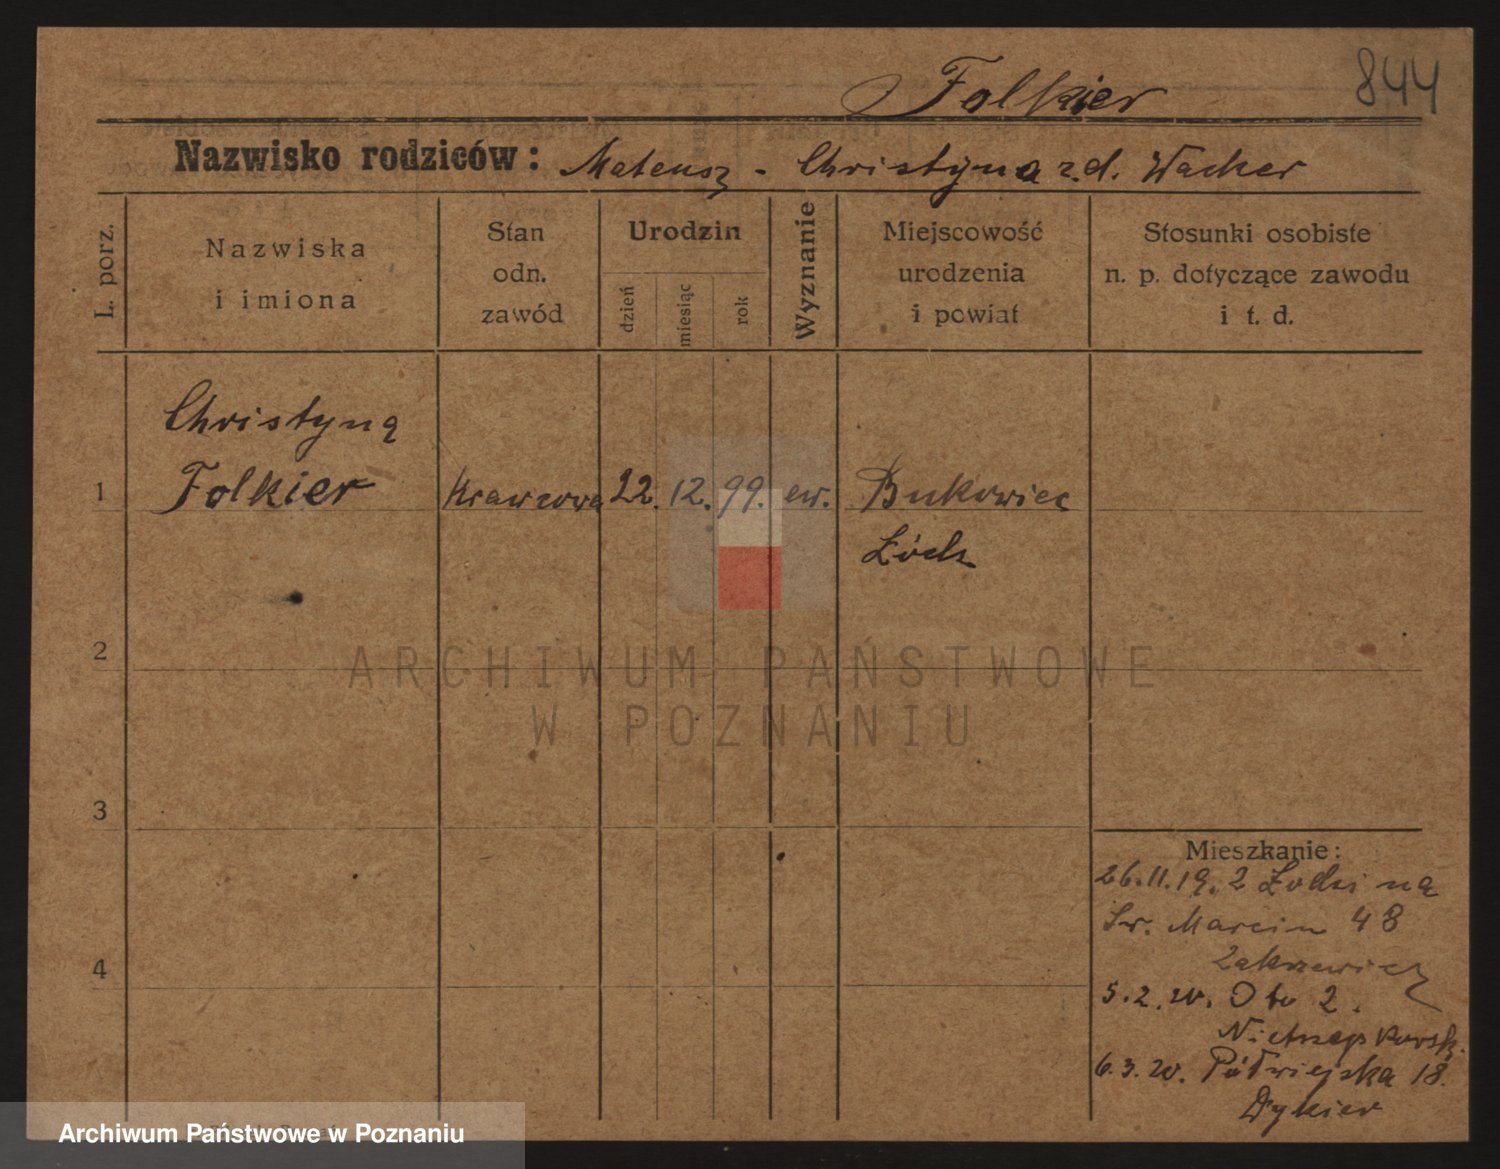 Folkier
844
Nazwisko rodziców: Mateusz - Christyna z.d. Wacker
L. porz.
Nazwiska
i imiona
Stan
odn.
zawód
Urodzin
dzień
miesiąc
rok
Wyznanie
Miejscowość
urodzenia
i powiat
Stosunki osobiste
n. p. dotyczące zawodu
i t. d.
Christyna
1 Folkier Krawcowa 22. 12. 99. ew. Bukowiec
Łódz
2
3
4
Mieszkanie:
26.11.19. z Łodzi na
Św. Marcin 48
5.2.20. Otto 2.
6.3.20. Półwiejska 18.
Dykier
ARCHIWUM PAŃSTWOWE
W POZNANIU
Archiwum Państwowe w Poznaniu